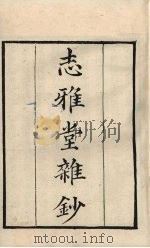 志雅堂雜鈔
新狗
www.mtoou.info